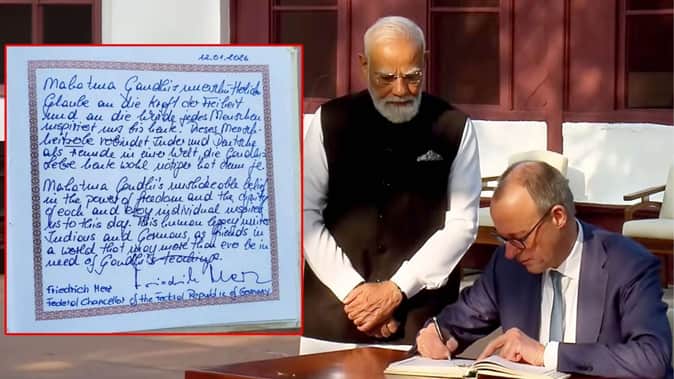 12.01.2026
Mahatma Gandhis unerschütterlicher
Glaube an die Kraft der Freiheit
und an die Würde jedes Menschen
inspiriert uns bis heute. Dieses Mensch-
verbindet Inder und Deutsche
als Freunde in einer Welt, die Gandhis
Lehre heute wohl nötiger hat denn je.
Mahatma Gandhi's unshakeable belief
in the power of freedom and the dignity
of each and every individual inspires
us to this day. This human legacy unites
Indians and Germans as friends in
a world that may more than ever be in
need of Gandhi's teachings.
Friedrich Merz
Friedrich Merz
Federal Chancellor of the Federal Republic of Germany